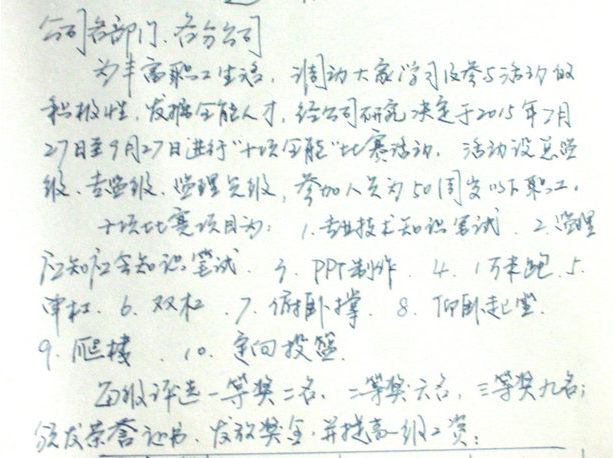 公司各部门、各分公司
为丰富职工生活，调动大家学习及参与活动的
积极性，发掘全能人才，经公司研究决定于2015年7月
27日至9月27日进行"十项全能"比赛活动，活动设总监
级、专监级、监理员级，参加人员为50周岁以下职工。
十项比赛项目为：1.专业技术知识笔试．2.监理
应知应会知识笔试．3.PPT制作．4.1万米跑．5.
单杠．6.双杠．7.俯卧撑．8.仰卧起坐．
9.爬楼．10.定向投篮．
每级评选一等奖二名，二等奖六名，三等奖九名；
颁发荣誉证书、发放奖金，并提高一级工资；